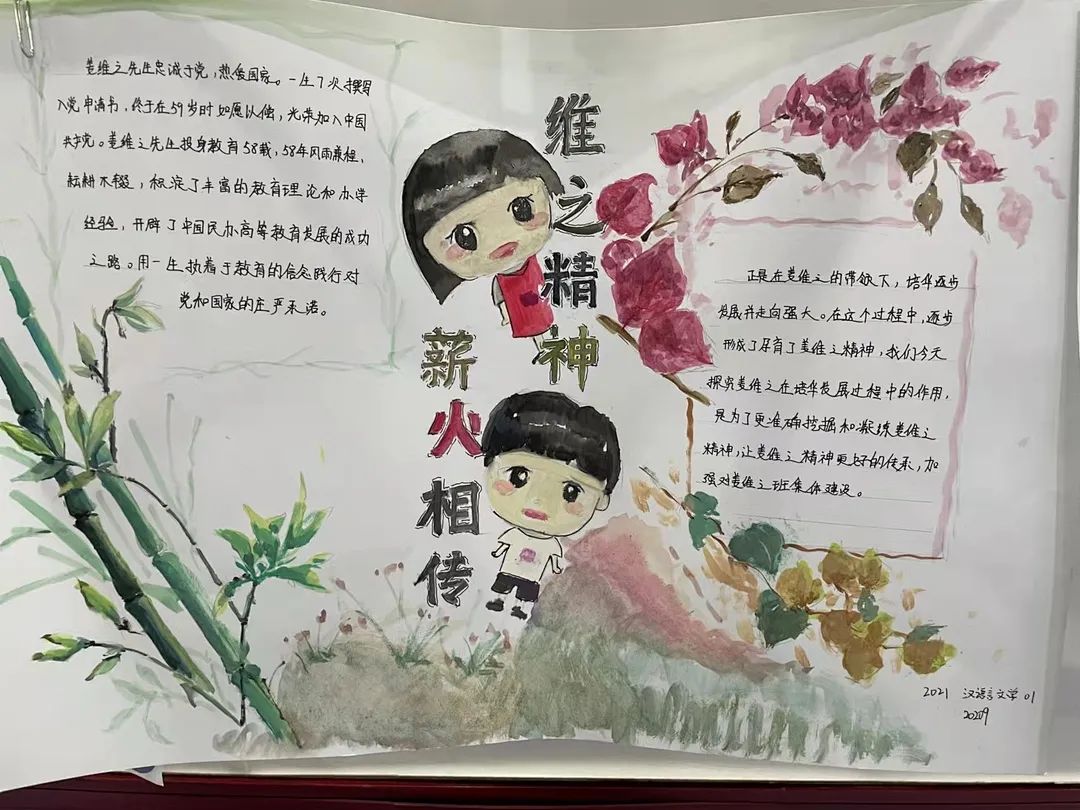 姜维之先生忠诚于党，热爱国家。一生7次撰写
入党申请书，终于在59岁时如愿以偿，光荣加入中国
共产党。姜维之先生投身教育58载，58年风雨兼程，
耘耕不辍，积淀了丰富的教育理论和办学
经验，开辟了中国民办高等教育发展的成功
之路。用一生执着于教育的信念践行对
党和国家的庄严承诺。
维之精神
薪火相传
正是在姜维之的带领下，培华逐步
发展并走向强大。在这个过程中，逐步
形成了孕育了姜维之精神，我们今天
探究姜维之在培华发展过程中的作用，
是为了更准确挖掘和凝练姜维之
精神，让姜维之精神更好的传承，加
强对姜维之班集体建设。
2021 汉语言文学 01
20209